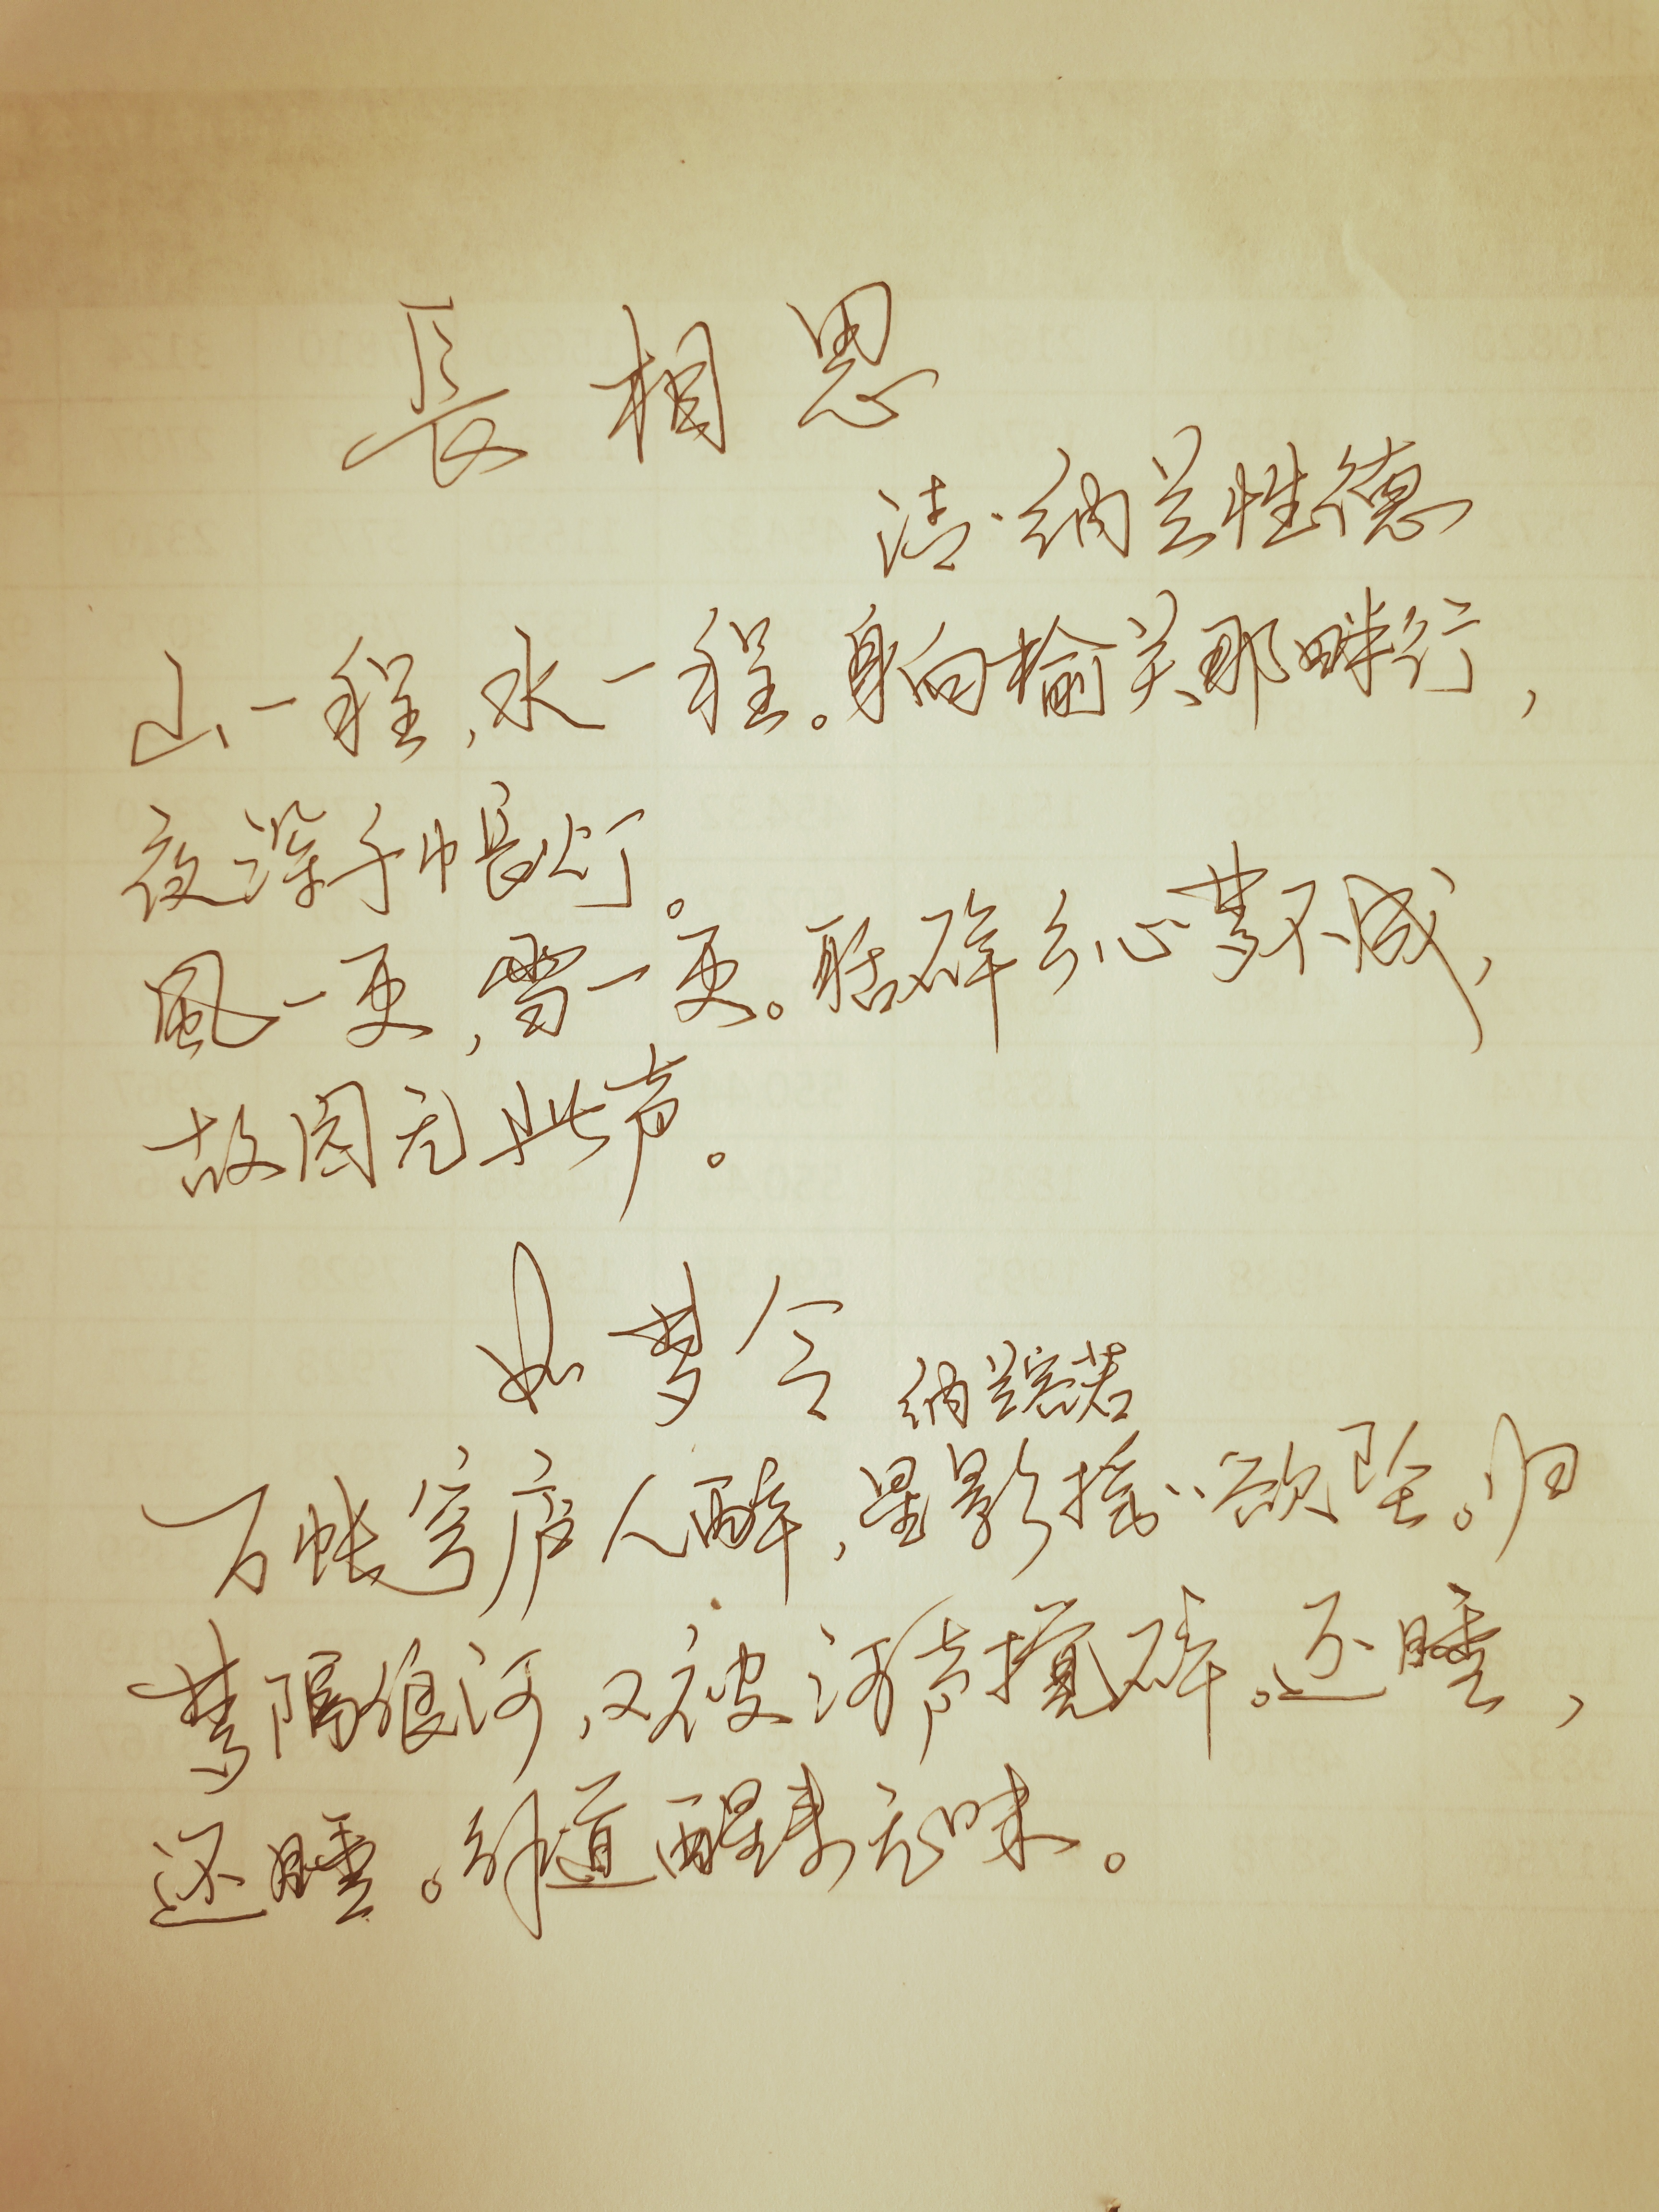 長相思
清·纳兰性德
山一程,水一程。身向榆关那畔行,
夜深千帳灯。
風一更,雪一更。聒碎乡心梦不成,
故园无此声。
如梦令 纳兰容若
万帐穹庐人醉,星影摇摇欲坠。归
梦隔狼河,又被河声搅碎。还睡,
还睡。解道醒来无味。